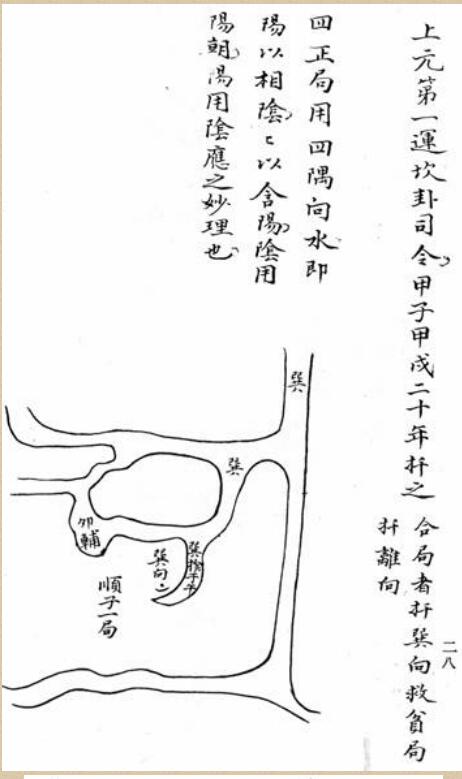 上元第一運坎卦司令甲子甲戌二十年扦之
合局者扦巽向救貧局
扦離向
二八
四正局用四隅向水即
陽以相陰〻以含陽陰用
陽朝陽用陰應之妙理也
巽
巽
巽向
卯輔
順子一局